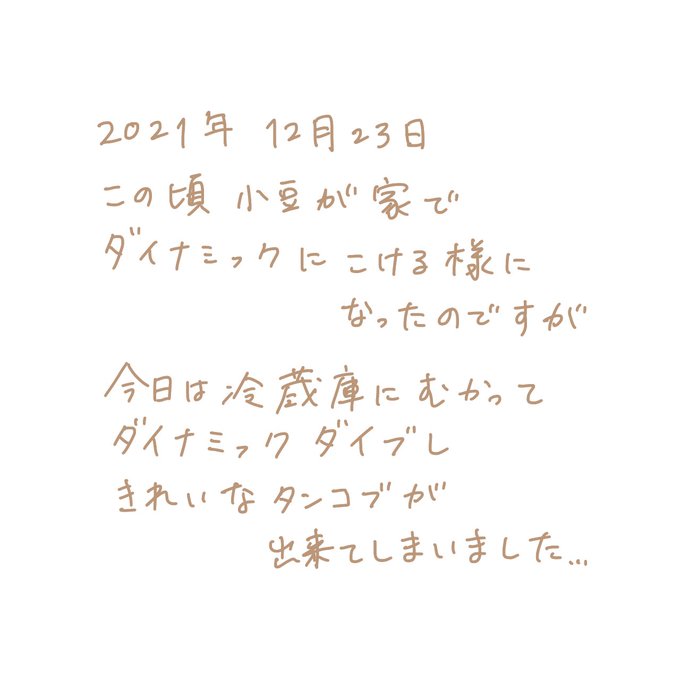 2021年 12月23日
この頃 小豆が家で
ダイナミックに こける様に
なったのですが
今日は冷蔵庫にむかって
ダイナミック ダイブし
きれいなタンコブが
出来てしまいました...